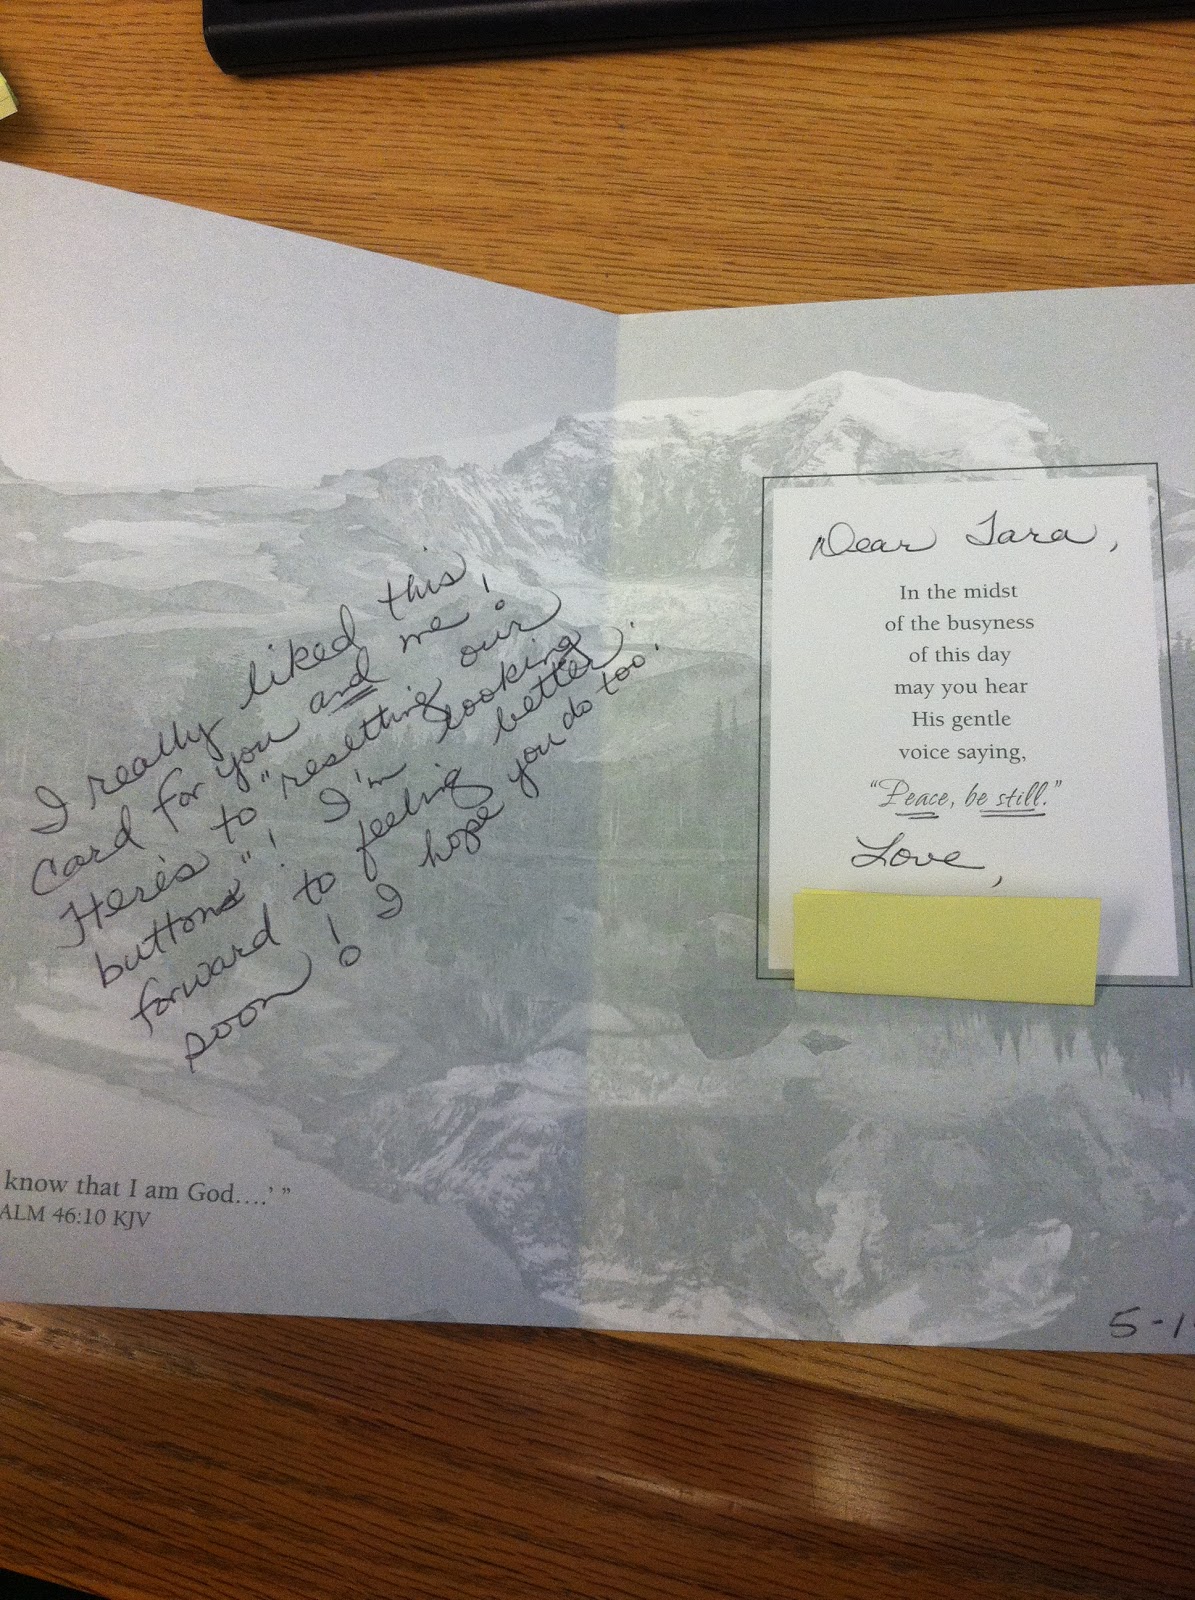 I really liked this
card for you and me!
Here's to "resetting our
buttons"! I'm looking
forward to feeling better
soon! I hope you do too!
know that I am God....' ”
ALM 46:10 KJV
Dear Tara,
In the midst
of the busyness
of this day
may you hear
His gentle
voice saying,
“Peace, be still.”
Love,
5-1